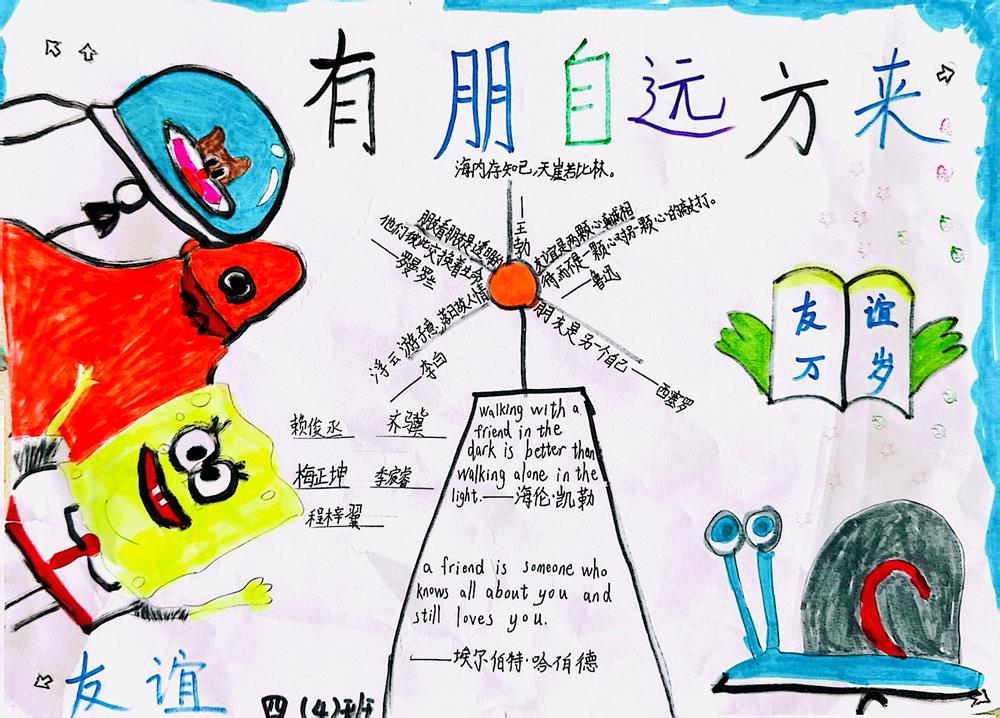 有朋自远方来
海内存知己,天崖若比林。
——王勃
朋友看朋友是透明的
他们彼此交换着生命
——罗曼罗兰
友谊是两颗心真诚相
待而不是一颗心对另一颗心的敲打。
——鲁迅
浮云游子意,落日故人情
——李白
朋友是另一个自己——西塞罗
友谊
万岁
赖俊丞 齐骥
梅正坤 李宸睿
程梓翼
walking with a
friend in the
dark is better than
walking alone in the
light.——海伦·凯勒
a friend is someone who
knows all about you and
still loves you.
——埃尔伯特·哈伯德
友谊
四(4)班